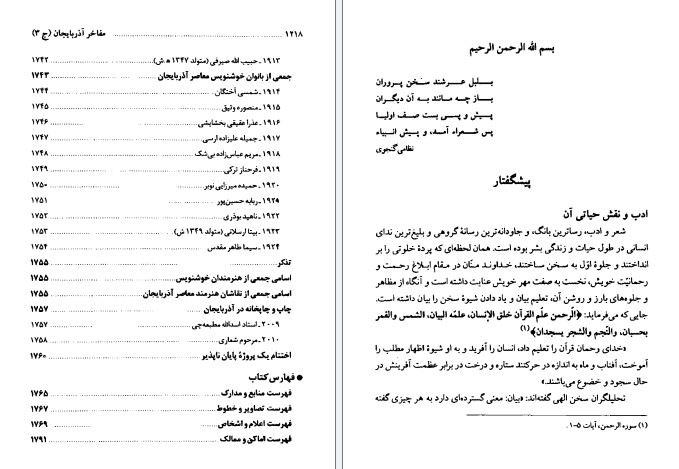 بسم الله الرحمن الرحیم
بلبل عرشند سخن پروران
باز چه مانند به آن دیگران
پیش و پسی بست صف اولیا
پس شعراء آمد، و پیش انبیاء
نظامی گنجوی
پیشگفتار
ادب و نقش حیاتی آن
شعر و ادب، رساترین بانگ، و جاودانه‌ترین رسانهٔ گروهی و بلیغ‌ترین ندای
انسانی در طول حیات و زندگی بشر بوده است. همان لحظه‌ای که پردهٔ خلوتی را بر
انداختند و جلوهٔ اوّل به سخن ساختند، خداوند منّان در مقام ابلاغ رحمت و
رحمانیّت خویش، نخست به صفت مهر خویش عنایت داشته است و آنگاه از مظاهر
و جلوه‌های بارز و روشن آن، تعلیم بیان و یاد دادن شیوهٔ سخن را بیان داشته است.
جایی که می‌فرماید: ﴿الرّحمن علّم القرآن خلق الإنسان، علمّه البیان، الشمس والقمر
بحسبان، والنّجم والشجر یسجدان﴾(۱)
«خدای رحمان قرآن را تعلیم داد، انسان را آفرید و به او شیوهٔ اظهار مطلب را
آموخت، آفتاب و ماه به اندازه در حرکتند ستاره و درخت در برابر عظمت آفرینش در
حال سجود و خضوع می‌باشند.»
تحلیلگران سخن الهی گفته‌اند: «بیان: معنی گسترده‌ای دارد به هر چیزی گفته
(۱) سوره الرحمن، آیات ۵-۱.
۱۲۱۸ مفاخر آذربایجان (ج ۳)
۱۹۱۳ ـ حبیب الله صیرفی (متولد ۱۳۴۷ ه‍.ش) ۱۷۴۲
جمعی از بانوان خوشنویس معاصر آذربایجان ۱۷۴۳
۱۹۱۴ ـ شمسی آختگان ۱۷۴۴
۱۹۱۵ ـ منصوره وثیق ۱۷۴۵
۱۹۱۶ ـ عذرا عقیقی بخشایشی ۱۷۴۶
۱۹۱۷ ـ جمیله علیزاده ارسی ۱۷۴۷
۱۹۱۸ ـ مریم عباس‌زاده بی‌شک ۱۷۴۸
۱۹۱۹ ـ فرحناز ترکی ۱۷۴۹
۱۹۲۰ ـ حمیده میرزایی نوبر ۱۷۵۰
۱۹۲۹ ـ ربابه حسین‌پور ۱۷۵۱
۱۹۲۲ ـ ناهید بوذری ۱۷۵۲
۱۹۲۳ ـ بیتا ارسلانی (متولد ۱۳۴۹ ش) ۱۷۵۳
۱۹۲۴ ـ سیما طاهر مقدس ۱۷۵۴
تذکر ۱۷۵۵
اسامی جمعی از هنرمندان خوشنویس ۱۷۵۵
اسامی جمعی از نقاشان هنرمند معاصر آذربایجان ۱۷۵۵
چاپ و چاپخانه در آذربایجان ۱۷۵۷
۲۰۰۹ ـ استاد اسدالله مطبعه‌چی ۱۷۵۷
۲۰۱۰ ـ مرحوم شعاری ۱۷۵۸
اختتام یک پروژهٔ پایان ناپذیر ۱۷۶۰
● فهارس کتاب
فهرست منابع و مدارک ۱۷۶۵
فهرست تصاویر و خطوط ۱۷۶۷
فهرست اعلام و اشخاص ۱۷۶۹
فهرست اماکن و ممالک ۱۷۹۱